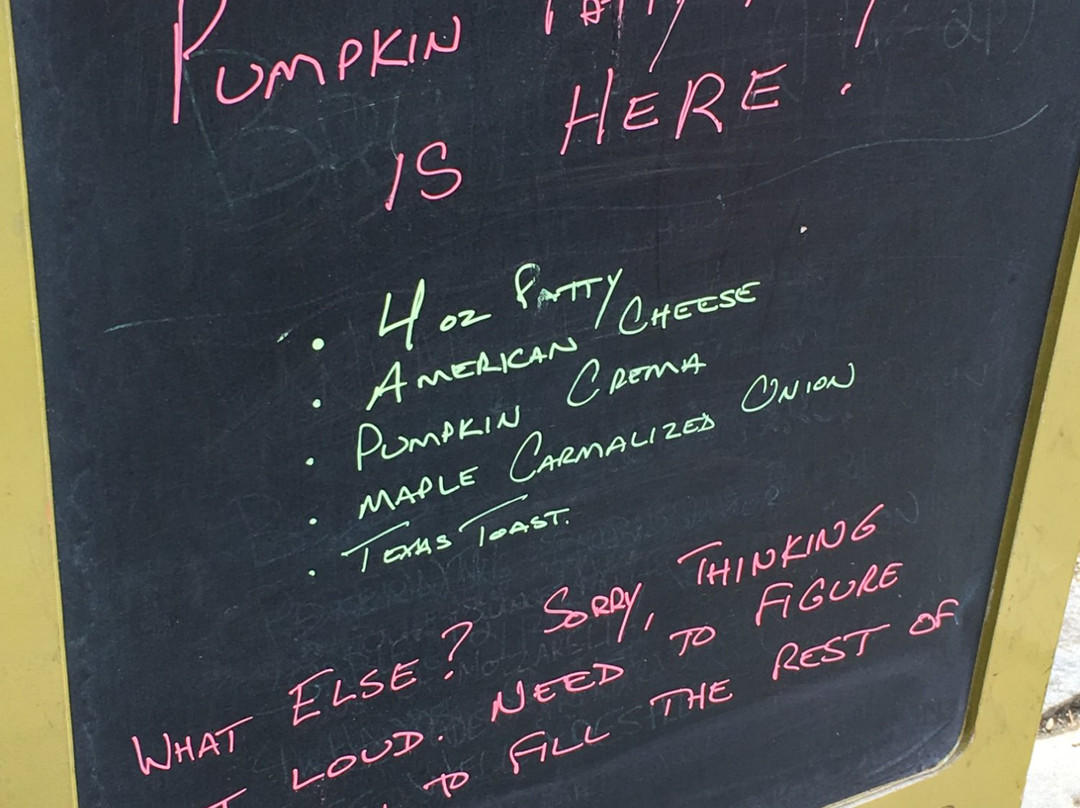 PUMPKIN PATTY
IS HERE!
• 4 oz PATTY
• AMERICAN CHEESE
• PUMPKIN CREMA
• MAPLE CARMALIZED ONION
• TEXAS TOAST.
WHAT ELSE? SORRY, THINKING
LOUD. NEED TO FIGURE
TO FILL THE REST OF